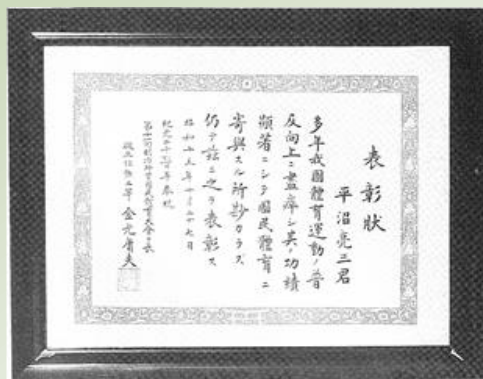 表彰狀
平沼亮三君
多年我國體育運動ノ普
及向上ニ盡瘁シ其ノ功績
顯著ニシテ國民體育ニ
寄與スル所尠カラズ
仍テ茲ニ之ヲ表彰ス
昭和十五年十一月三十七日
紀元二千六百年奉祝
第十一回明治神宮國民體育大會會長